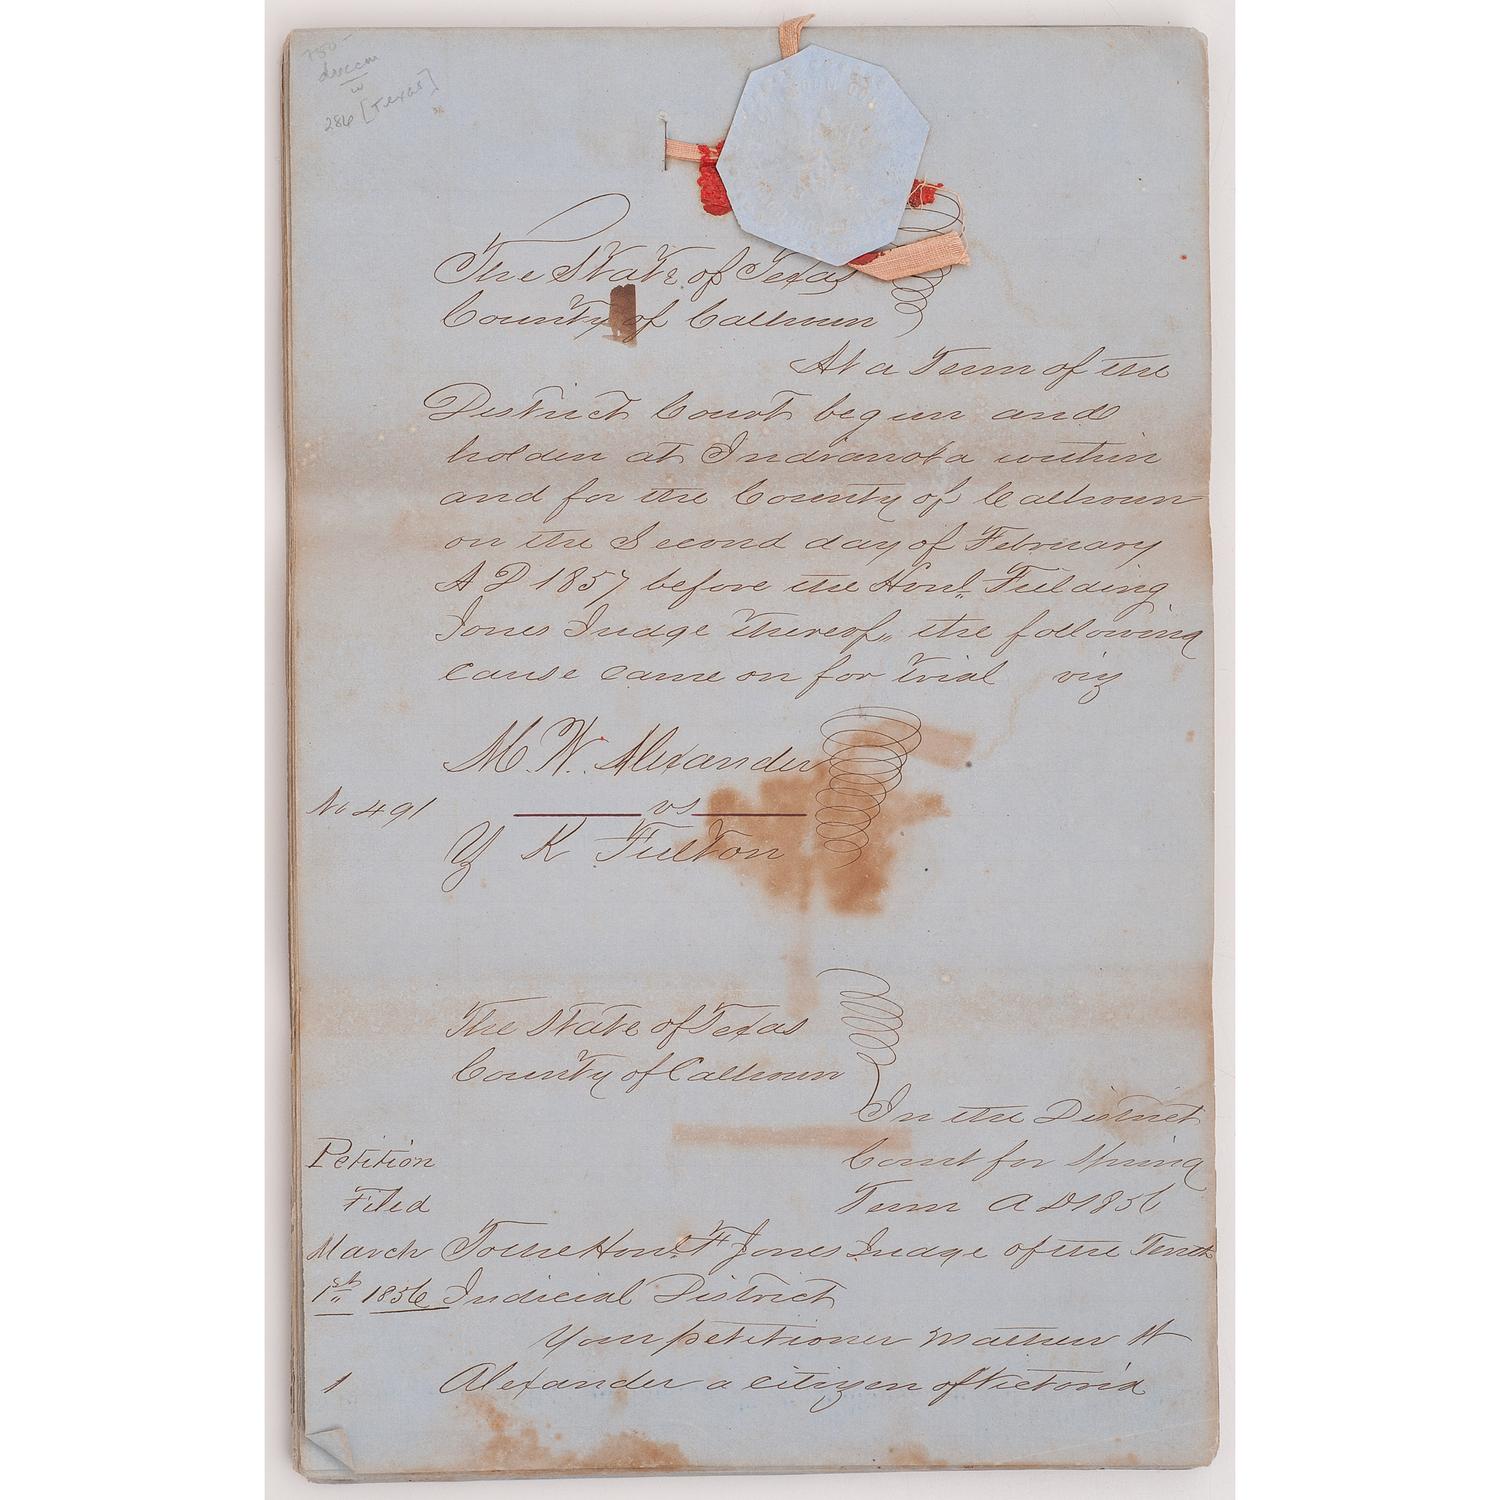 286 [Texas]
The State of Texas
County of Calhoun
At a Term of the
District Court begun and
holden at Indianola within
and for the County of Calhoun
on the Second day of February
A D 1857 before the Honl. Fielding
Jones Judge thereof, the following
cause came on for trial viz
M. W. Alexander
No 491 vs
Y K Fulton
The State of Texas
County of Calhoun
In the District
Petition Court for Spring
Filed Term A D 1856
March To the Honl. F Jones Judge of the Tenth
1st 1856 Judicial District
Your petitioner Mathew W
1 Alexander a citizen of Victoria